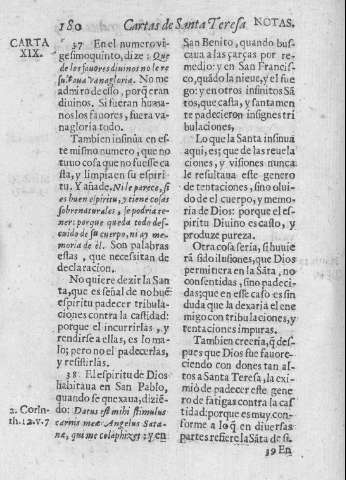 180 Cartas de Santa Teresa NOTAS.
CARTA
XIX.
37 En el numero vi-
gesimoquinto, dize: Que
de los fauores diuinos no le re
sultaua vanagloria. No me
admiro de esso, porq̃ eran
diuinos. Si fueran huma-
nos los fauores, fuera va-
nagloria todo.
Tambien insinùa en es-
te mismo numero, que no
tuuo cosa que no fuesse ca-
sta, y limpia en su espiri-
tu. Y añade. Ni le parece, si
es buen espiritu, y tiene cosas
sobrenaturales, se podria te-
ner: porque queda todo des-
cuido de su cuerpo, ni ay me-
moria de èl. Son palabras
estas, que necesitan de
declaracion.
No quiere dezir la San
ta, que es señal de no buẽ
espiritu padecer tribula-
ciones contra la castidad:
porque el incurrirlas, y
rendirse a ellas, es lo ma-
lo; pero no el padecerlas,
y resistirlas.
38 El espiritu de Dios
habitaua en San Pablo,
quando se quexaua, diziẽ-
do: Datus est mihi stimulus
carnis meæ Angelus Sata-
næ, qui me colaphizet: y en
2. Corin-
th. 12. v. 7
San Benito, quando bus-
caua a las çarças por re-
medio: y en San Francis-
co, quãdo la nieue, y el fue
go: y en otros infinitos Sã
tos, que casta, y santamen
te padecieron insignes tri
bulaciones,
Lo que la Santa insinua
aqui, es; que de las reuela
ciones, y visiones nunca
le resultaua este genero
de tentaciones, sino olui-
do el cuerpo, y memo-
ria de Dios: porque el es-
piritu Diuino es casto, y
produze pureza.
Otra cosa seria, si huuie
rã sido ilusiones, que Dios
permitiera en la Sãta, no
consentidas, sino padeci-
das; que en esse caso es sin
duda que la dexaria el ene
migo con tribulaciones, y
tentaciones impuras.
Tambien creeria, q̃ des-
pues que Dios fue fauore-
ciendo con dones tan al-
tos a Santa Teresa, la exi-
miò de padecer este gene-
ro de fatigas contra la cas
tidad: porque es muy con-
forme a lo q̃ en diuersas
partes refiere la Sãta de si.
39 En